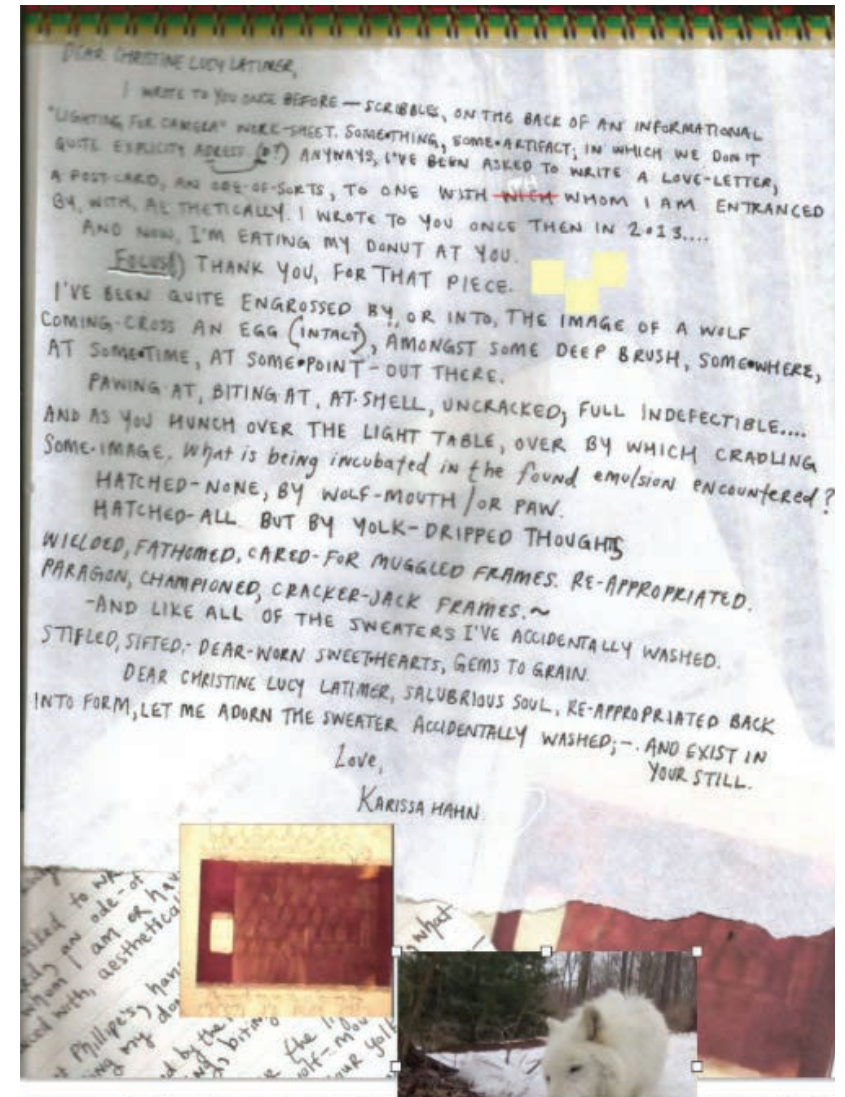 DEAR CHRISTINE LUCY LATIMER,
I WROTE TO YOU ONCE BEFORE — SCRIBBLES, ON THE BACK OF AN INFORMATIONAL
"LIGHTING FOR CAMERA" WORK-SHEET. SOME•THING, SOME•ARTIFACT; IN WHICH WE DON'T
QUITE EXPLICITY ADRESS (IT?) ANYWAYS, I'VE BEEN ASKED TO WRITE A LOVE-LETTER,
A POST-CARD, AN ODE-OF-SORTS, TO ONE WITH WHOM I AM ENTRANCED
BY, WITH, AESTHETICALLY. I WROTE TO YOU ONCE THEN IN 2013....
AND NOW, I'M EATING MY DONUT AT YOU.
FOCUS() THANK YOU, FOR THAT PIECE.
I'VE BEEN QUITE ENGROSSED BY, OR INTO, THE IMAGE OF A WOLF
COMING-CROSS AN EGG (INTACT), AMONGST SOME DEEP BRUSH, SOME•WHERE,
AT SOME•TIME, AT SOME•POINT - OUT THERE.
PAWING-AT, BITING AT, AT-SHELL, UNCRACKED; FULL INDEFECTIBLE....
AND AS YOU HUNCH OVER THE LIGHT TABLE, OVER BY WHICH CRADLING
SOME-IMAGE. What is being incubated in the found emulsion encountered?
HATCHED-NONE, BY WOLF-MOUTH / OR PAW.
HATCHED-ALL BUT BY YOLK-DRIPPED THOUGHTS
WIELDED, FATHOMED, CARED-FOR MUGGLED FRAMES. RE-APPROPRIATED.
PARAGON, CHAMPIONED, CRACKER-JACK FRAMES.~
-AND LIKE ALL OF THE SWEATERS I'VE ACCIDENTALLY WASHED.
STIFLED, SIFTED,- DEAR-WORN SWEETHEARTS, GEMS TO GRAIN.
DEAR CHRISTINE LUCY LATIMER, SALUBRIOUS SOUL, RE-APPROPRIATED BACK
INTO FORM, LET ME ADORN THE SWEATER ACCIDENTALLY WASHED;-. AND EXIST IN
YOUR STILL.
Love,
KARISSA HAHN.
asked to
an ode-of
whom I am or hav
with, aesthetical
what
Phillipe's, han
my do
by the
biting
the
wolf-mou
your yolk